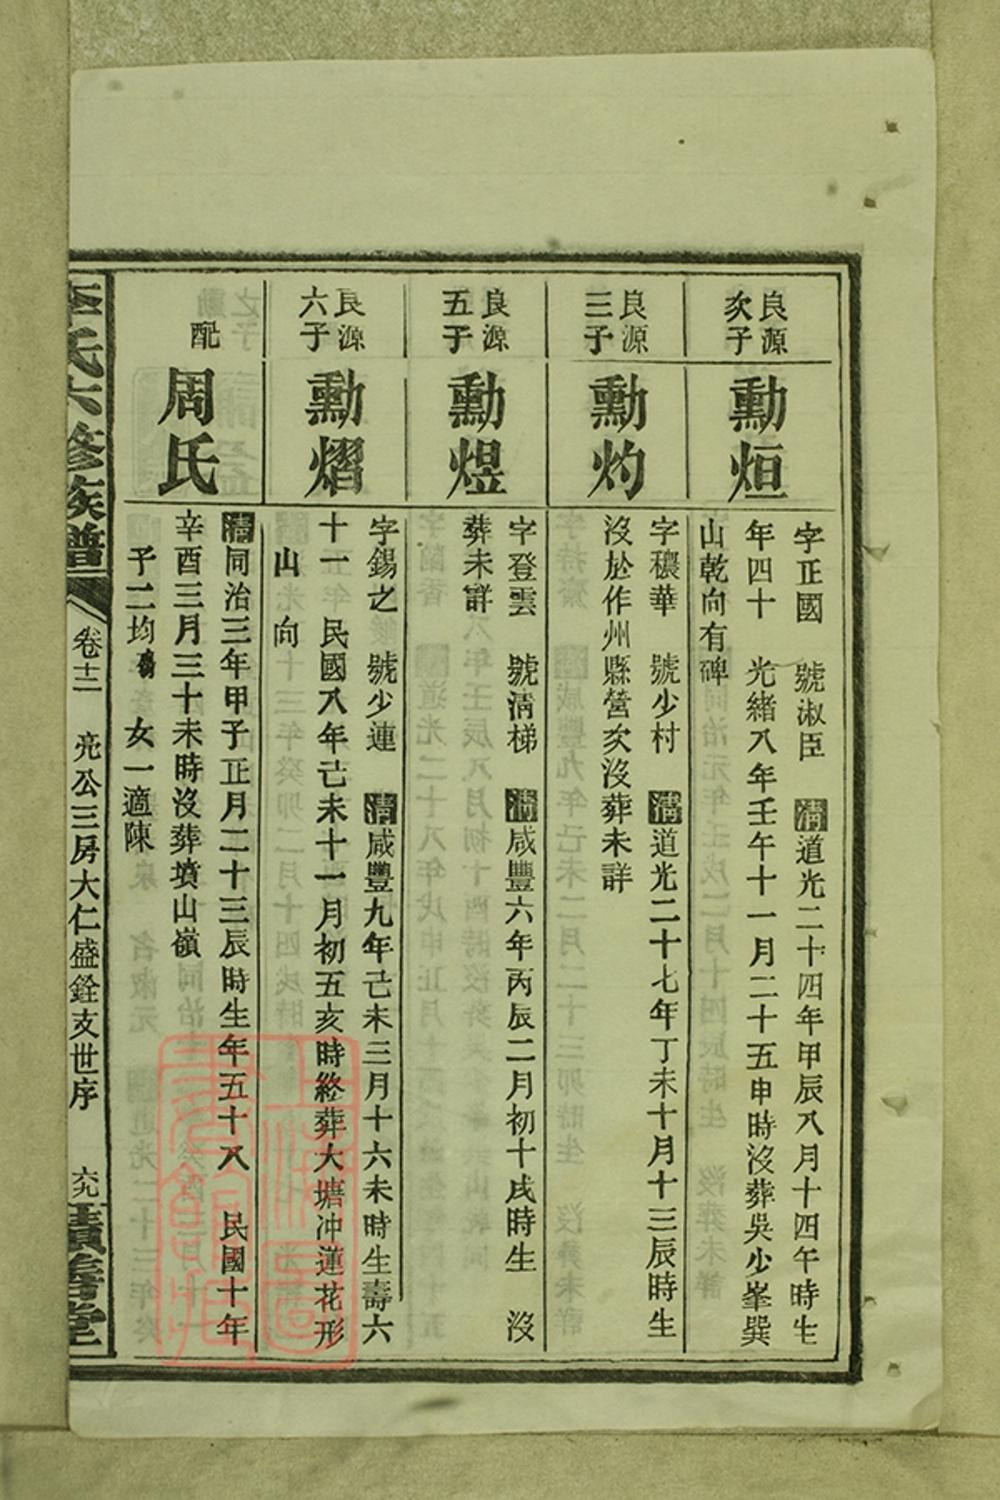 良源
次子
勳烜
字正國　號淑臣　清道光二十四年甲辰八月十四午時生
年四十　光緒八年壬午十一月二十五申時沒葬吳少峯巽
山乾向有碑
良源
三子
勳灼
字穠華　號少村　清道光二十七年丁未十月十三辰時生
沒於作州縣營次沒葬未詳
良源
五子
勳煜
字登雲　號清梯　清咸豐六年丙辰二月初十戌時生　沒
葬未詳
良源
六子
勳熠
字錫之　號少連　清咸豐九年己未三月十六未時生壽六
十一　民國八年己未十一月初五亥時終葬大塘冲蓮花形
山　向
配
周氏
清同治三年甲子正月二十三辰時生年五十八　民國十年
辛酉三月三十未時沒葬墳山嶺
子二均殤　女一適陳
李氏六修族譜　卷十二　亮公三房大仁盛銓支世序　六九　積善堂